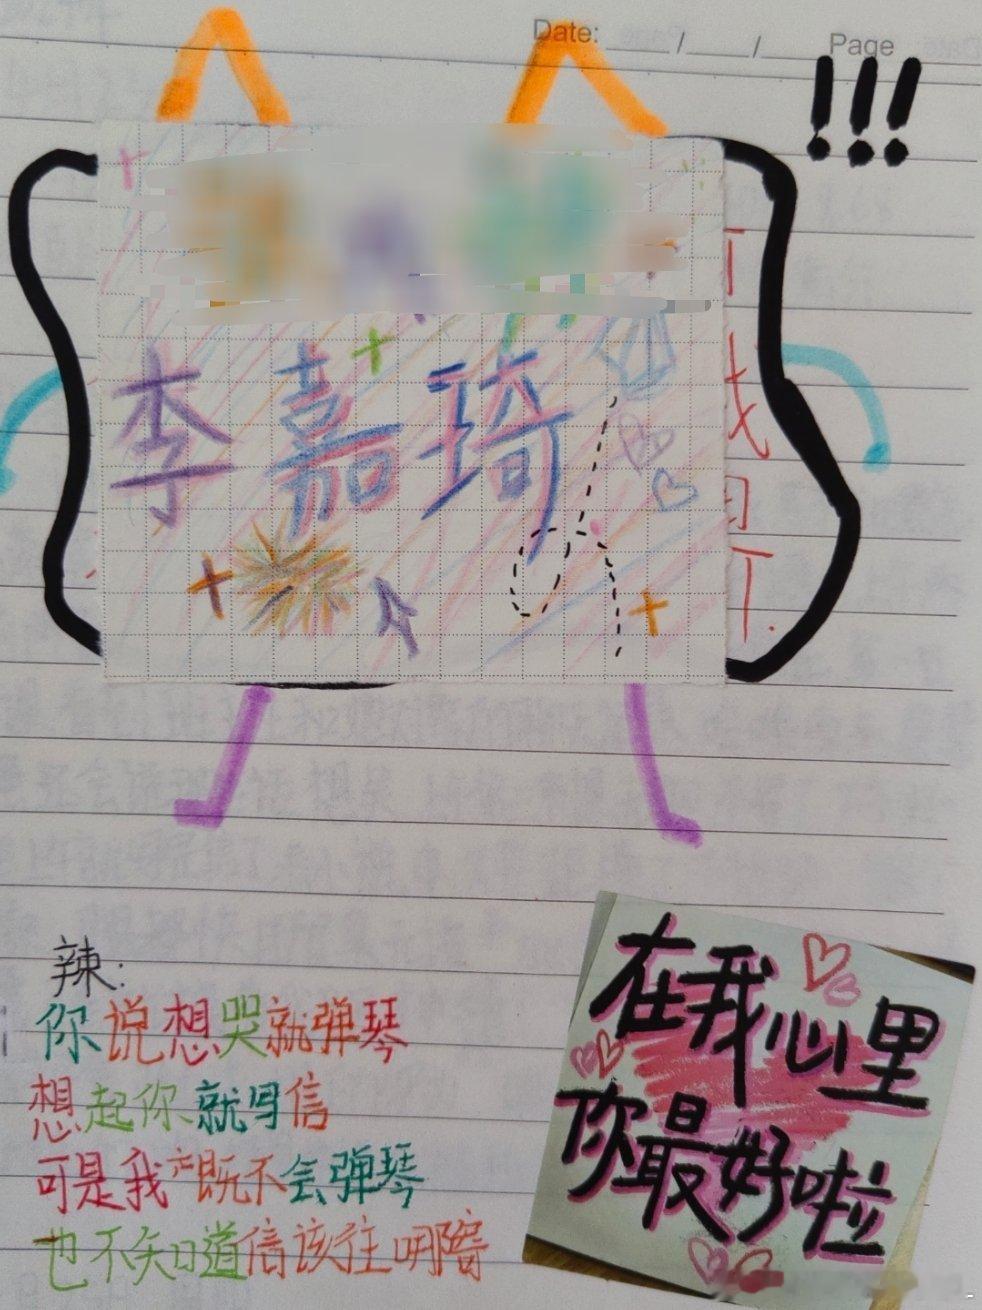 Date: / / Page
!!!
李嘉琦
辣:
你说想哭就弹琴
想起你就写信
可是我既不会弹琴
也不知道信该往哪寄
在我心里
你最好啦